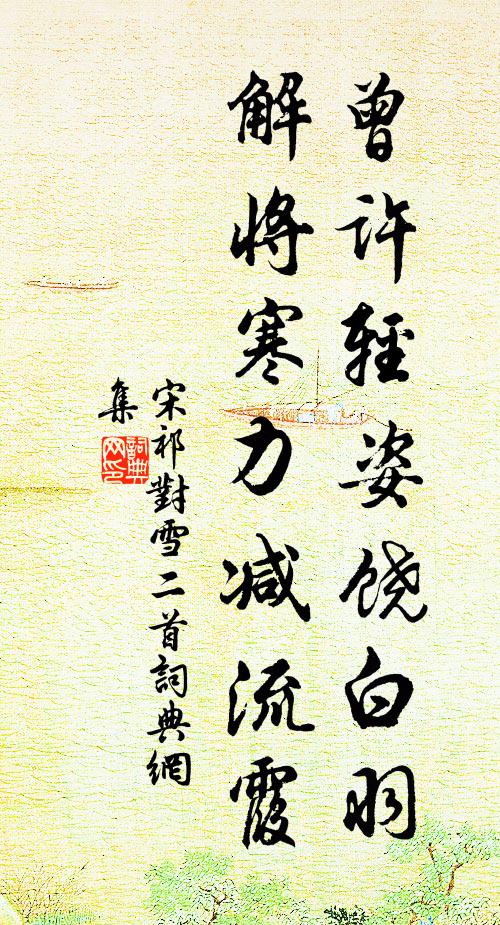 曾许轻姿饶白羽
解将寒力减流霞
宋祁對雪二首詞典網
集
詞典
网印